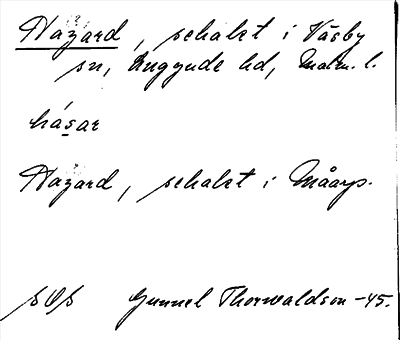 Hazard, schakt i Väsby
sn, Luggude hd, Malm. l.
hásar
Hazard, schakt i Måarp.
SOS Gunnel Thorwaldson -45.